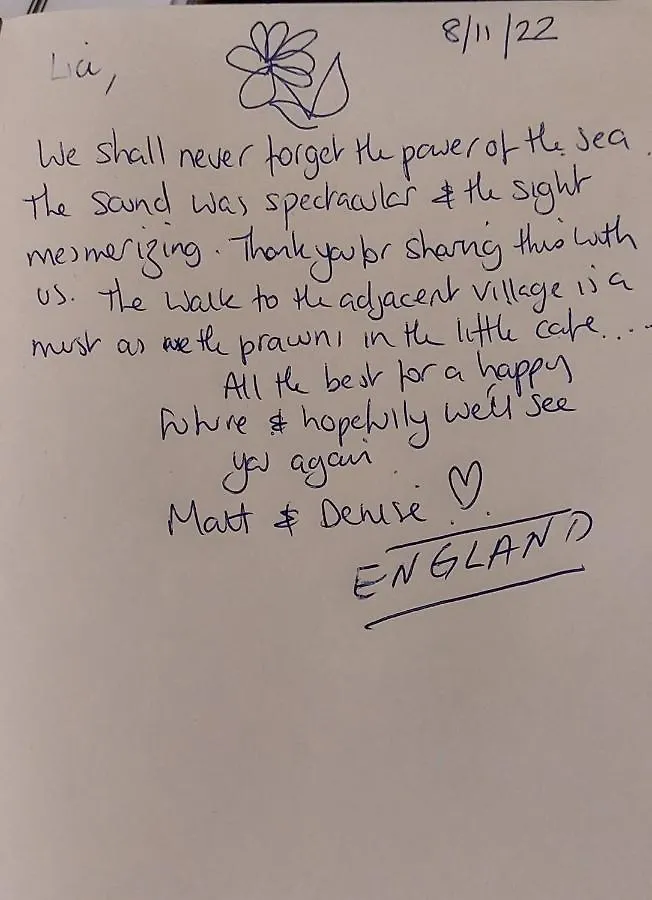 8/11/22
Lia,
We shall never forget the power of the sea.
The sound was spectacular & the sight
mesmerizing. Thank you for sharing this with
us. The walk to the adjacent village is a
must as are the prawns in the little cafe....
All the best for a happy
future & hopefully we'll see
you again.
Matt & Denise ♡
ENGLAND